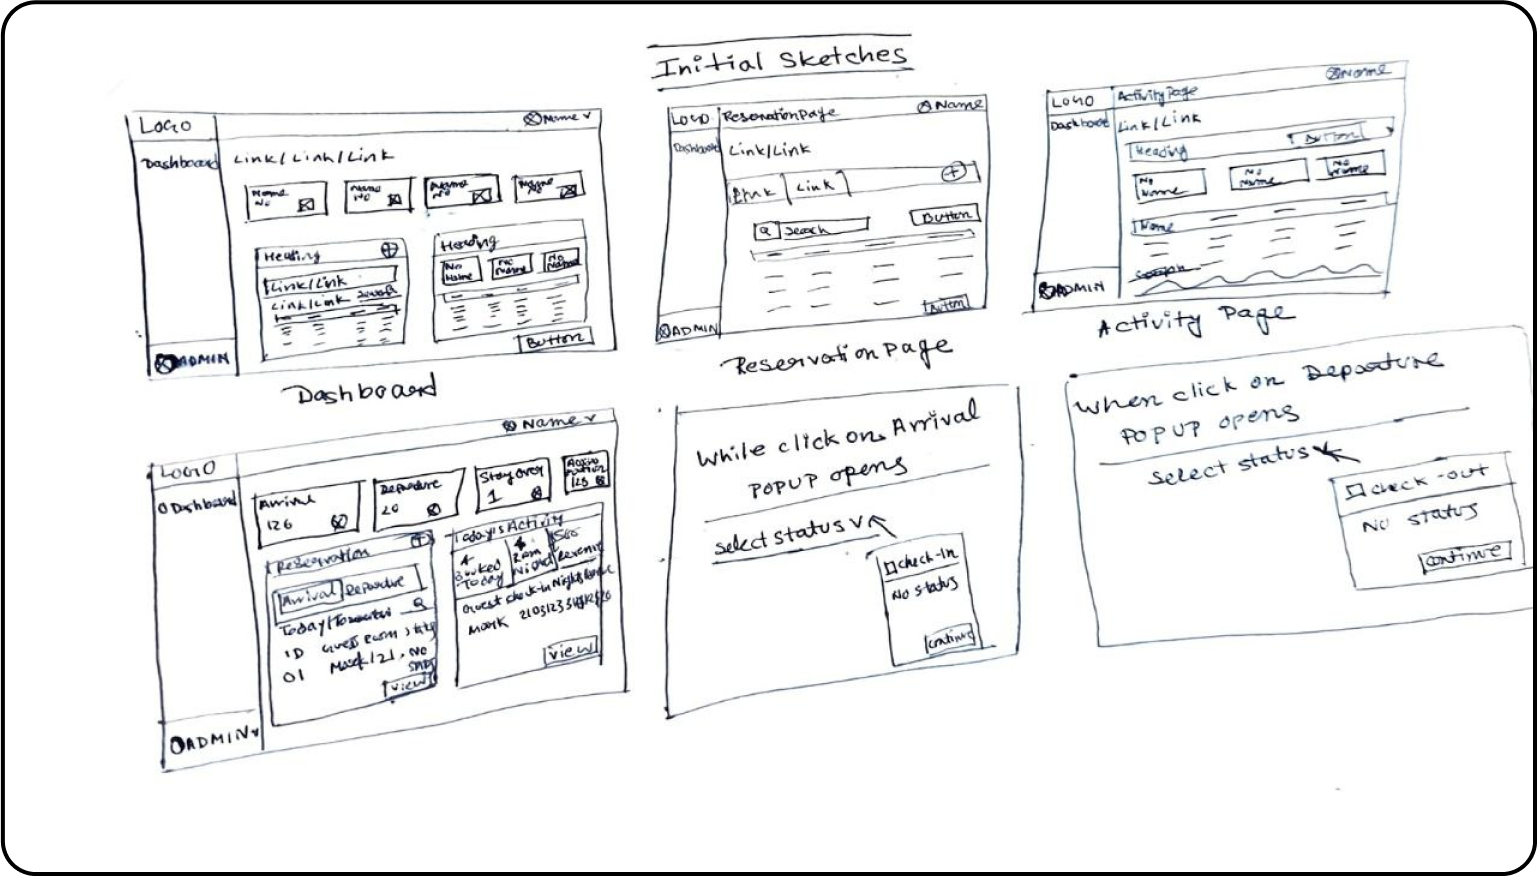 Initial Sketches
LOGO
Name
Dashboard
Link/Link/Link
Name
No
Name
No
Name
No
Name
No
Heading
Link/Link
Link/Link Search
Heading
No
Name
No
Name
No
Name
Button
ADMIN
Dashboard
LOGO
Reservation Page
Name
Dashboard
Link/Link
Link
Link
Search
Button
Button
ADMIN
Reservation Page
LOGO
Activity Page
Name
Dashboard
Link/Link
Heading
Button
No
Name
No
Name
No
Name
Name
ADMIN
Activity Page
LOGO
Name
Dashboard
Arrival
126
Departure
20
Stay over
1
128
Reservation
Arrival
Departure
Today/
ID Guest Room
01 Mark 121, No
View
Today's Activity
4
Booked
Today
4
Room
Night
Revenue
Guest check-in Night
Mark
View
ADMIN
While click on Arrival
POPUP opens
select status
check-In
No status
continue
When click on Departure
POPUP opens
select status
check-out
No status
continue